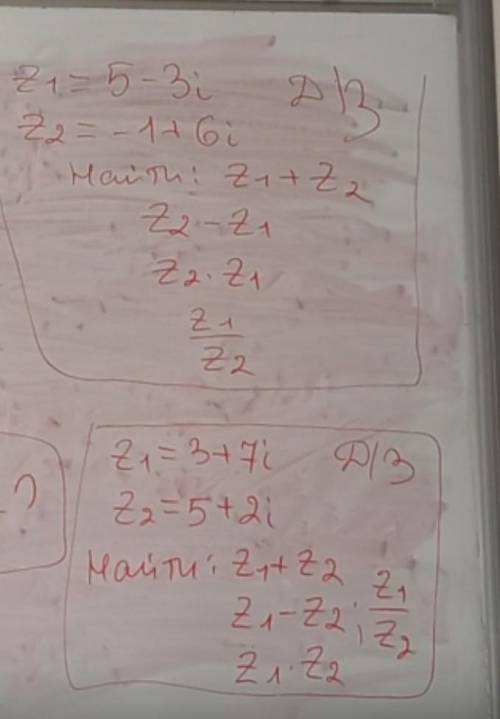 z₁ = 5 - 3i Д/З
z₂ = -1 + 6i
Найти: z₁ + z₂
z₂ - z₁
z₂ · z₁
z₁/z₂
?
z₁ = 3 + 7i Д/З
z₂ = 5 + 2i
Найти: z₁ + z₂
z₁ - z₂ ; z₁/z₂
z₁ · z₂